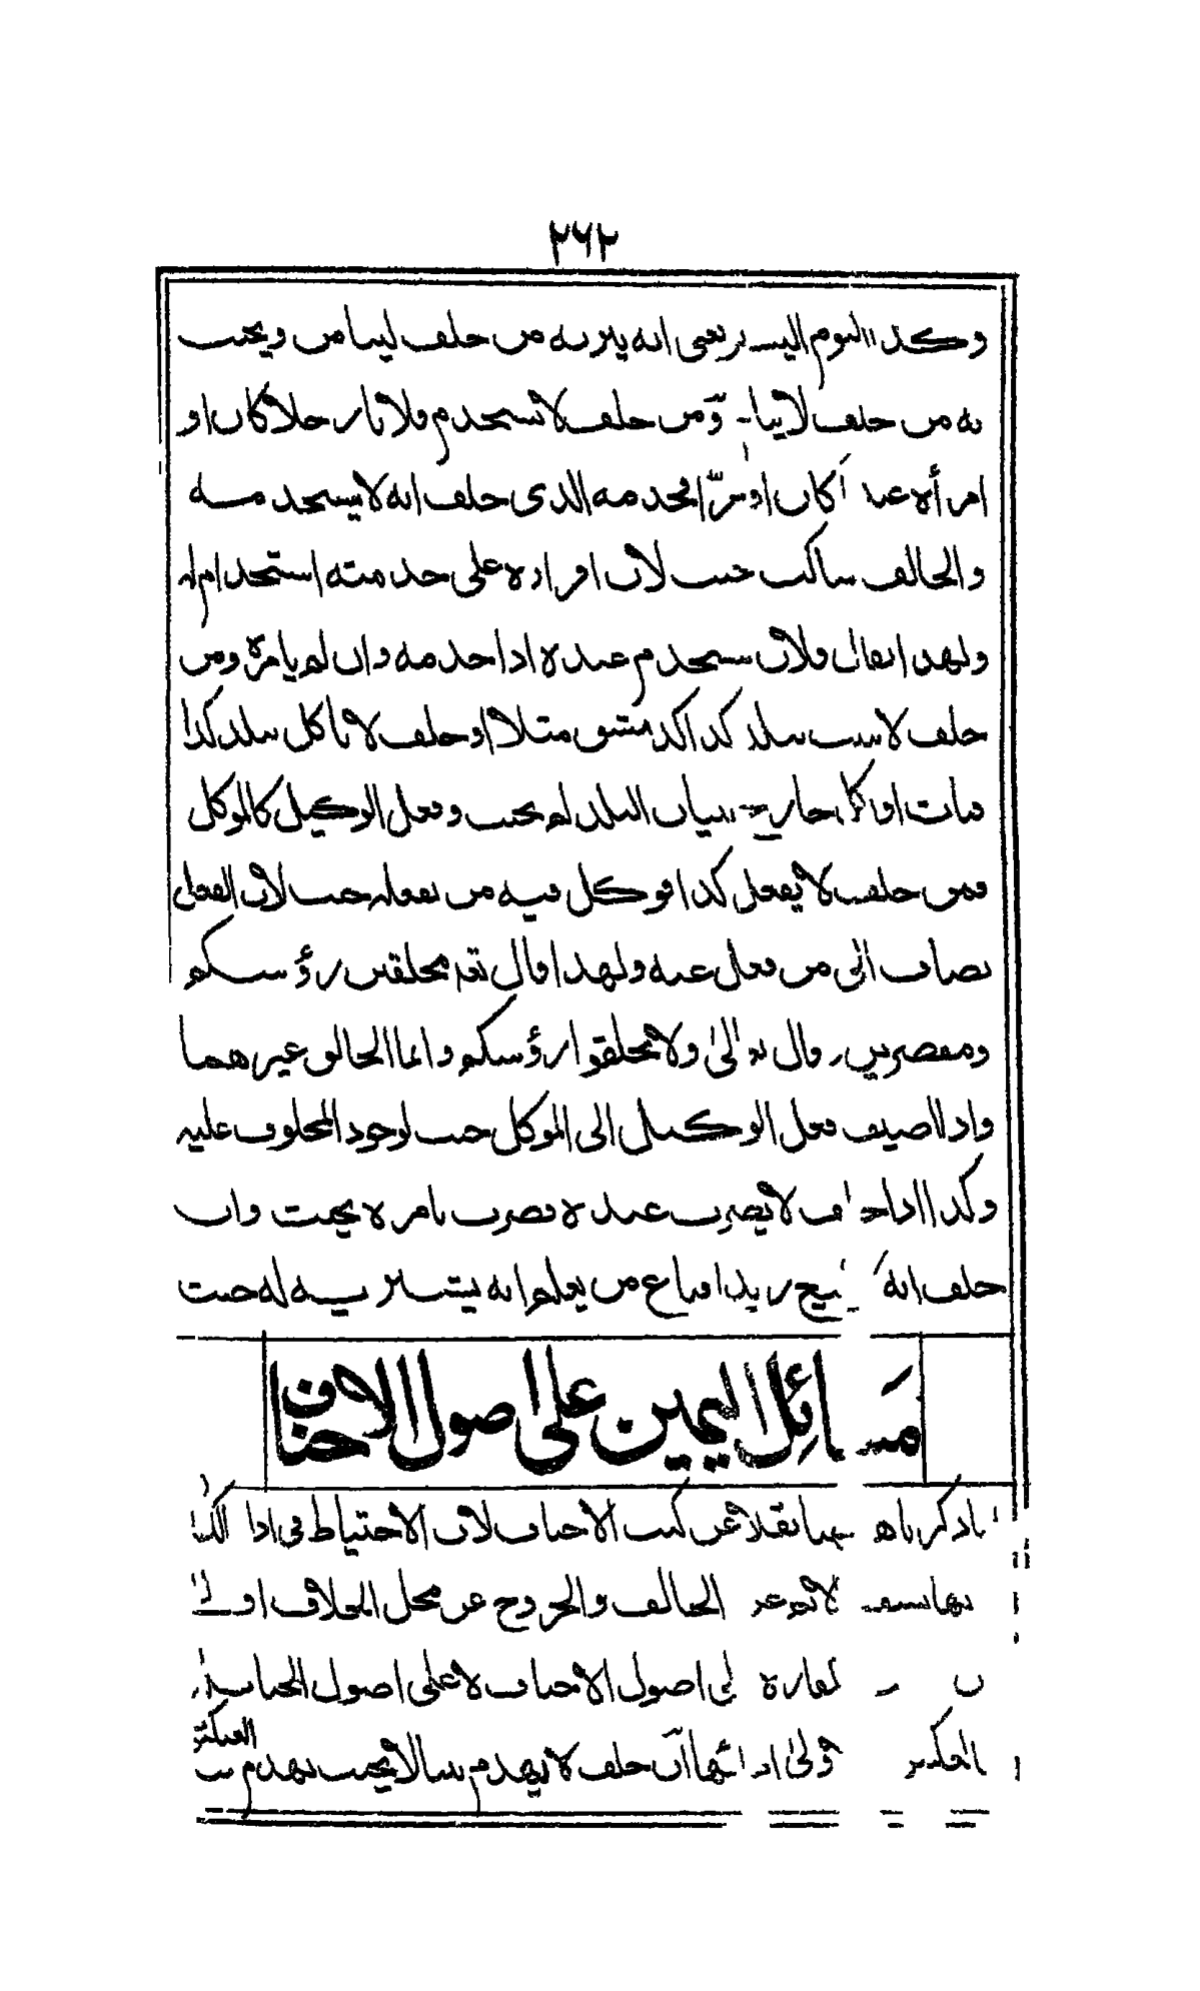 ٢٦٢
وكذا اليوم اليسير يعني انه يبر به من حلف ليسا من ويحنث
به من حلف لا يبا ومن حلف لا يستخدم فلانا رجلا كان او
امرأة عبدا كان او حرّا فخدمه الذى حلف انه لا يستخدمه
والحالف ساكت حنث لان اقراره على خدمته استخدام له
ولهذا يقال فلان يستخدم عبده اذا خدمه وان لم يأمره ومن
حلف لا يبيت ببلد كذا كدمشق مثلا او حلف لا ياكل ببلد كذا
فبات او اكل خارج بنيان البلد لم يحنث وفعل الوكيل كالموكل
فمن حلف لا يفعل كذا فوكل فيه من يفعله حنث لان الفعل
يضاف الى من فعل عنه ولهذا قال تعالى محلقين رؤسكم
ومقصرين وقال تعالى ولا تحلقوا رؤسكم وانما الحالق غيرهما
واذا اضيف فعل الوكيل الى الموكل حنث لوجود المحلوف عليه
وكذا اذا حلف لا يضرب عبده فضرب بامره يحنث وان
حلف انه لا يبيع زيدا فباع من يعلم انه يشتريه له حنث
مسائل اليمين على اصول الاحناف
ذكرناها هنا نقلا عن كتب الاحناف لان الاحتياط في اذا
الحالف والخروج عن محل الخلاف اولى
اصول الاحناف لا على اصول الحنابلة
بالعكس اولى اذ انها ان حلف لا يهدم بيتا لا يحنث بهدم بيت
العنكبوت